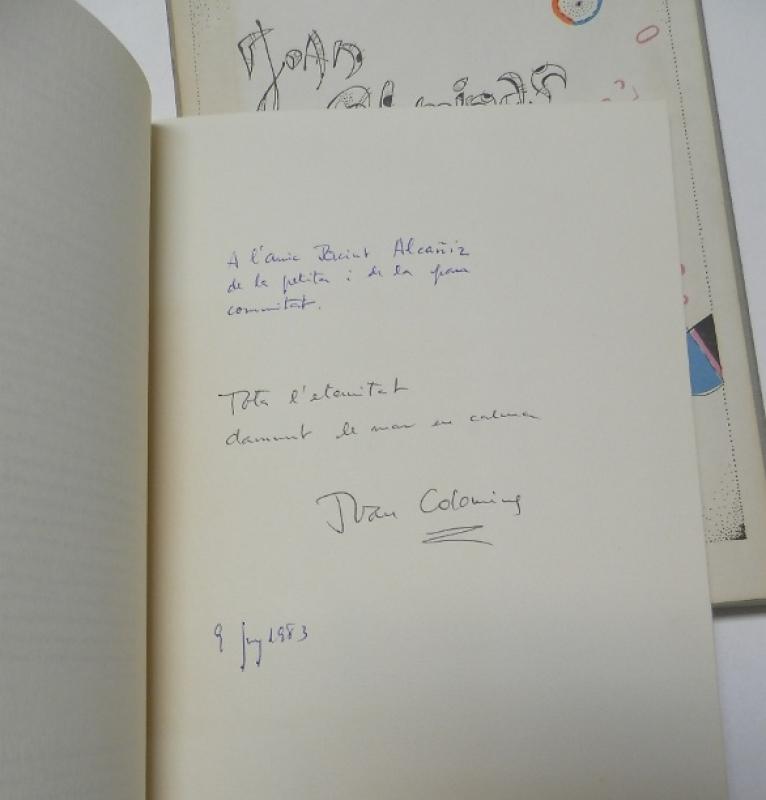 JOAN
COLOMINAS
A l'amic Jacint Alcañiz
de la petita i de la gran
comunitat.
Tota l'eternitat
damunt la mar en calma
Joan Colomines
9 juny 1983